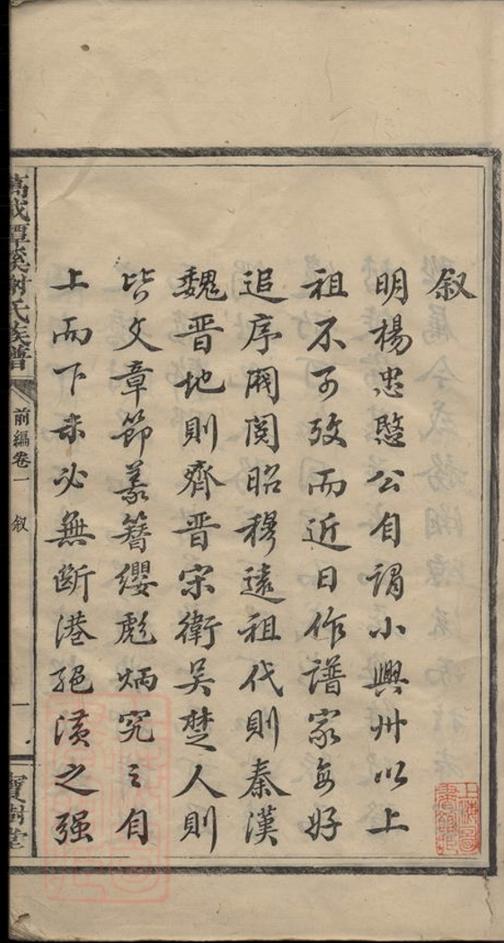 叙
明楊忠愍公自謂小興州以上
祖不可攷而近日作譜家每好
追序閥閲昭穆遠祖代則秦漢
魏晋地則齊晋宋衛吴楚人則
皆文章節義簪纓彪炳究之自
上而下未必無断港絕潢之强
萬載潭溪謝氏族譜
前編卷一
叙
一
寶樹堂